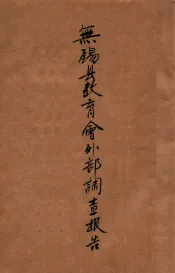 無錫县教育會外部調查报告